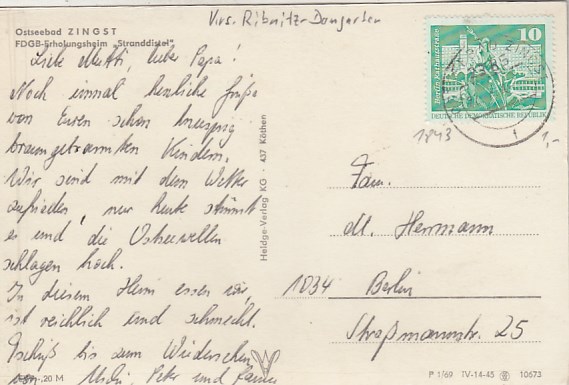 Krs. Ribnitz-Damgarten
Ostseebad ZINGST
FDGB-Erholungsheim "Stranddistel"
Liebe Mutti, lieber Papa!
Noch einmal herzliche Grüße
von Euren schon knusprig
braungebrannten Kindern.
Wir sind mit dem Wetter
zufrieden, nur heute stürmt
es und die Ostseewellen
schlagen hoch.
In diesem Heim essen wir,
ist reichlich und schmeckt.
Tschüß bis zum Wiedersehen
von Peter und
-,20 M
Heldge-Verlag KG · 437 Köthen
10
Berlin, Rathausstraße
DEUTSCHE DEMOKRATISCHE REPUBLIK
1843
1,-
Fam.
Herrmann
1034 Berlin
Straßmannstr. 25
P 1/69 IV-14-45 10673